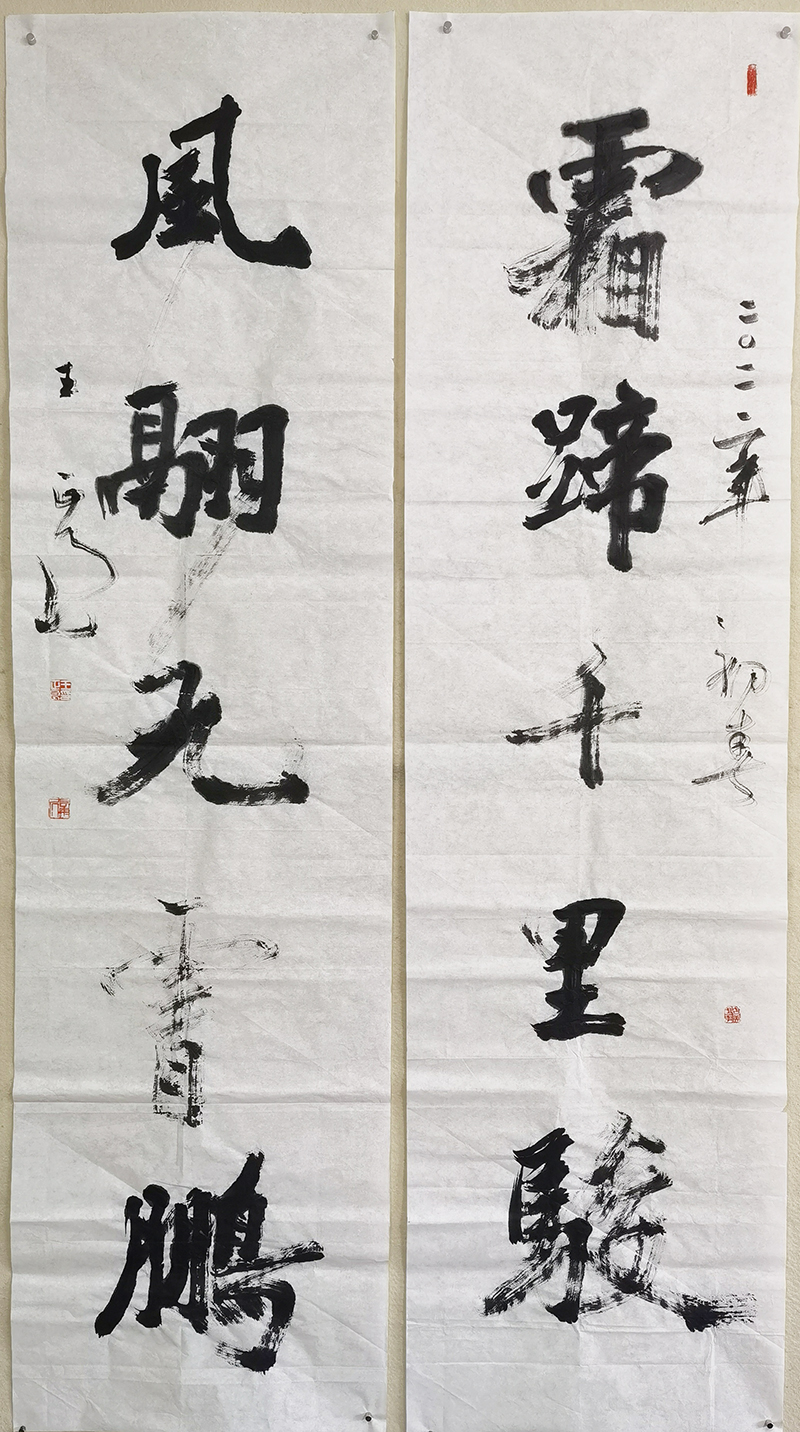 霜蹄千里駿
二〇二二年初春
風翮九霄鵬
王